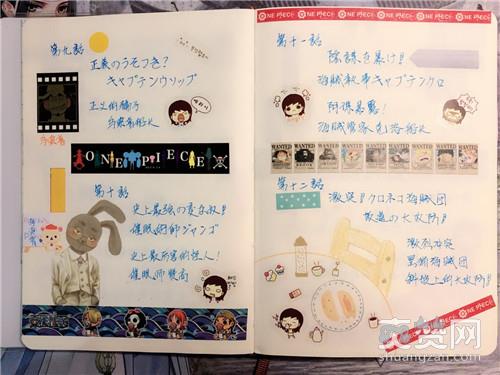 第九話
正義のうそつき?
キャプテンウソップ
正义的骗子
乌索普船长
乌索普
ONE PIECE
第十話
史上最強の変な奴!!
催眠術師ジャンゴ
史上最厉害的怪人!
催眠师赞高
ONE PIECE
第十一話
陰謀を暴け!!
海賊執事キャプテンクロ
阴谋暴露!
海贼管家克洛船长
WANTED WANTED WANTED WANTED WANTED WANTED WANTED WANTED WANTED
第十二話
激突!!クロネコ海賊団
坂道の大攻防!!
激烈冲突
黑猫海贼团
斜坡上的大攻防!!
ONE PIECE
爽赞网
shuangzan.com